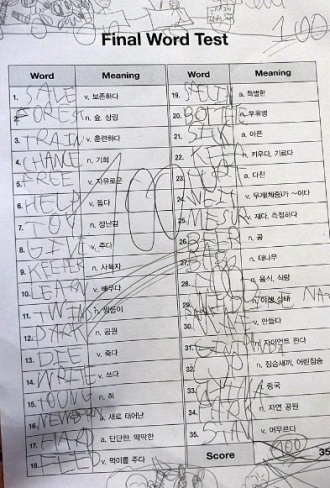 100
Final Word Test
Word Meaning Word Meaning
1. SALE v. 보존하다
2. FOREST n. 숲, 삼림
3. TRAIN v. 훈련하다
4. CHANCE n. 기회
5. FREE v. 자유로운
6. HELP v. 돕다
7. TOY n. 장난감
8. GIVE v. 주다
9. KEEPER n. 사육자
10. LEARN v. 배우다
11. TWIN n. 쌍둥이
12. PARK n. 공원
13. DIE v. 죽다
14. WRITE v. 쓰다
15. n. 혀
16. NEWBORN a. 새로 태어난
17. HARD a. 단단한, 딱딱한
18. FEED v. 먹이를 주다
100
19. a. 특별한
20. BOTTLE n. 우유병
21. SICK a. 아픈
22. v. 키우다, 기르다
23. a. 다친
24. v. 무게(체중)가 ~이다
25. v. 재다, 측정하다
26. n. 곰
27. n. 대나무
28. n. 음식, 식량
29. n. 야생 상태
30. v. 만들다
31. 자이언트 판다
32. n. 짐승새끼, 어린짐승
33. 중국
34. n. 자연 공원
35. v. 머무르다
Score 100 35